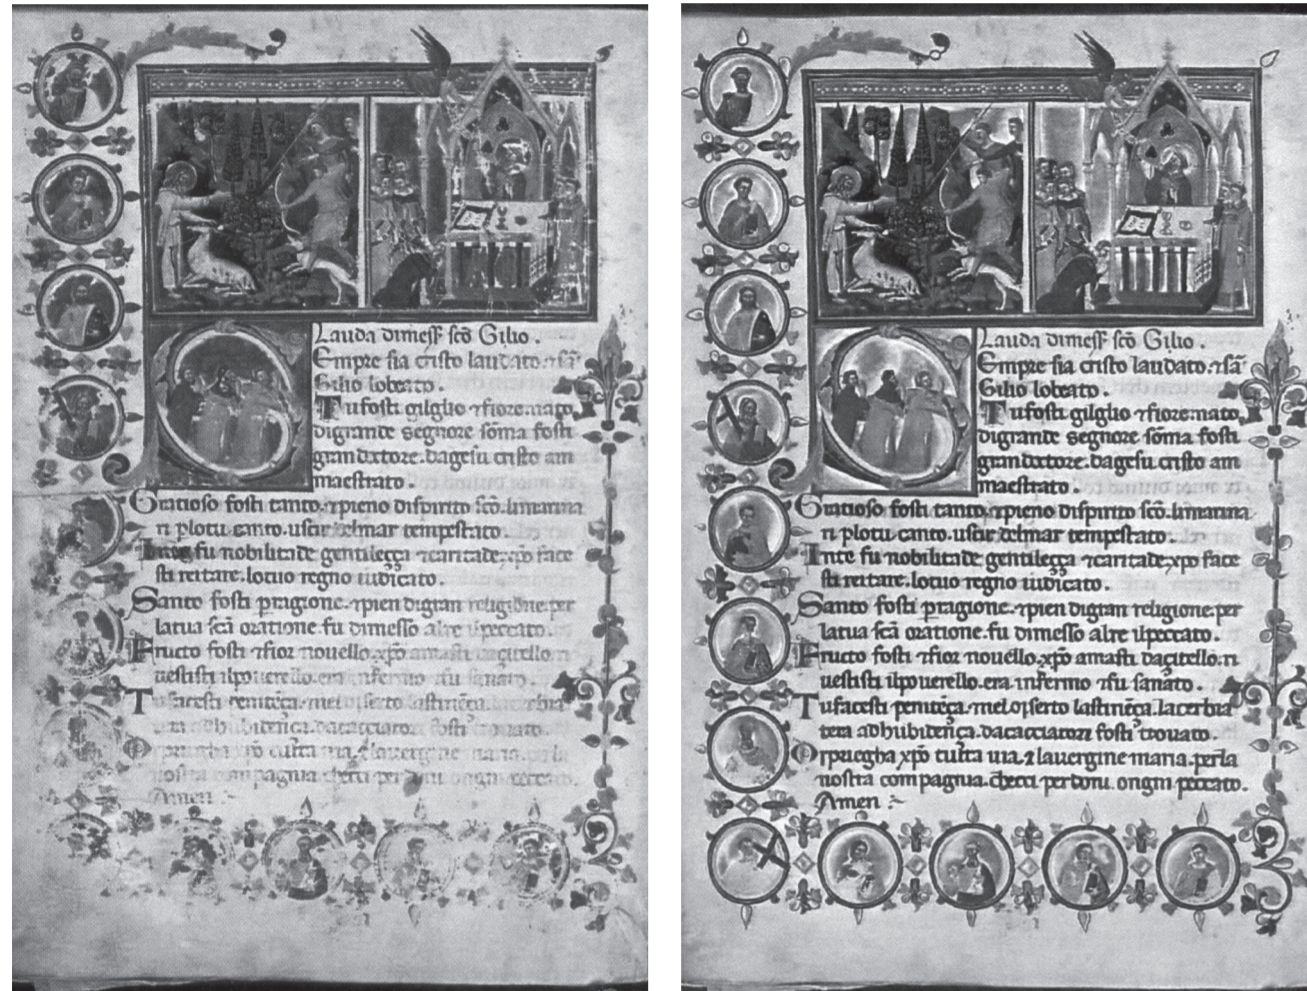 Lauda dimess sco Gilio.
Empre sia cristo laudato. ⁊ sã
Gilio lobeato.
Tu fosti gilglio ⁊ fiore. nato,
digrande segnore soma fosti
gran doctore. dagesu cristo am
maestrato.
Gratioso fosti tanto, ⁊ pieno dispirito sco.
n plotu canto. uscir delmar tempestato.
fu nobilitade gentileçça ⁊ caritade, xpo face
sti reitare. lotuo regno iudicato.
Santo fosti pragione. ⁊ pien digran religione. per
latua sca oratione. fu dimesso alre ilpeccato.
Fructo fosti ⁊ fior nouello. xpo amasti daçitello. n
uestisti ilpouerello. era infermo ⁊ fu sanato.
Tu facesti
Amen
Lauda dimess sco Gilio.
Empre sia cristo laudato. ⁊ sã
Gilio lobeato.
Tu fosti gilglio ⁊ fiore. nato,
digrande segnore soma fosti
gran doctore. dagesu cristo am
maestrato.
Gratioso fosti tanto, ⁊ pieno dispirito sco.
n plotu canto. uscir delmar tempestato.
Inte fu nobilitade gentileçça ⁊ caritade, xpo face
sti reitare. lotuo regno iudicato.
Santo fosti pragione. ⁊ pien digran religione. per
latua sca oratione. fu dimesso alre ilpeccato.
Fructo fosti ⁊ fior nouello. xpo amasti daçitello. n
uestisti ilpouerello. era infermo ⁊ fu sanato.
Tu facesti penitẽça. meloserto lastinẽça. lacerbia
tera adhubidença. dacacciatori fosti trouato.
Orpriegha xpo cuita uia. ⁊ lauergine maria. perla
nostra compagnia. checci perdoni. ongni peccato.
Amen